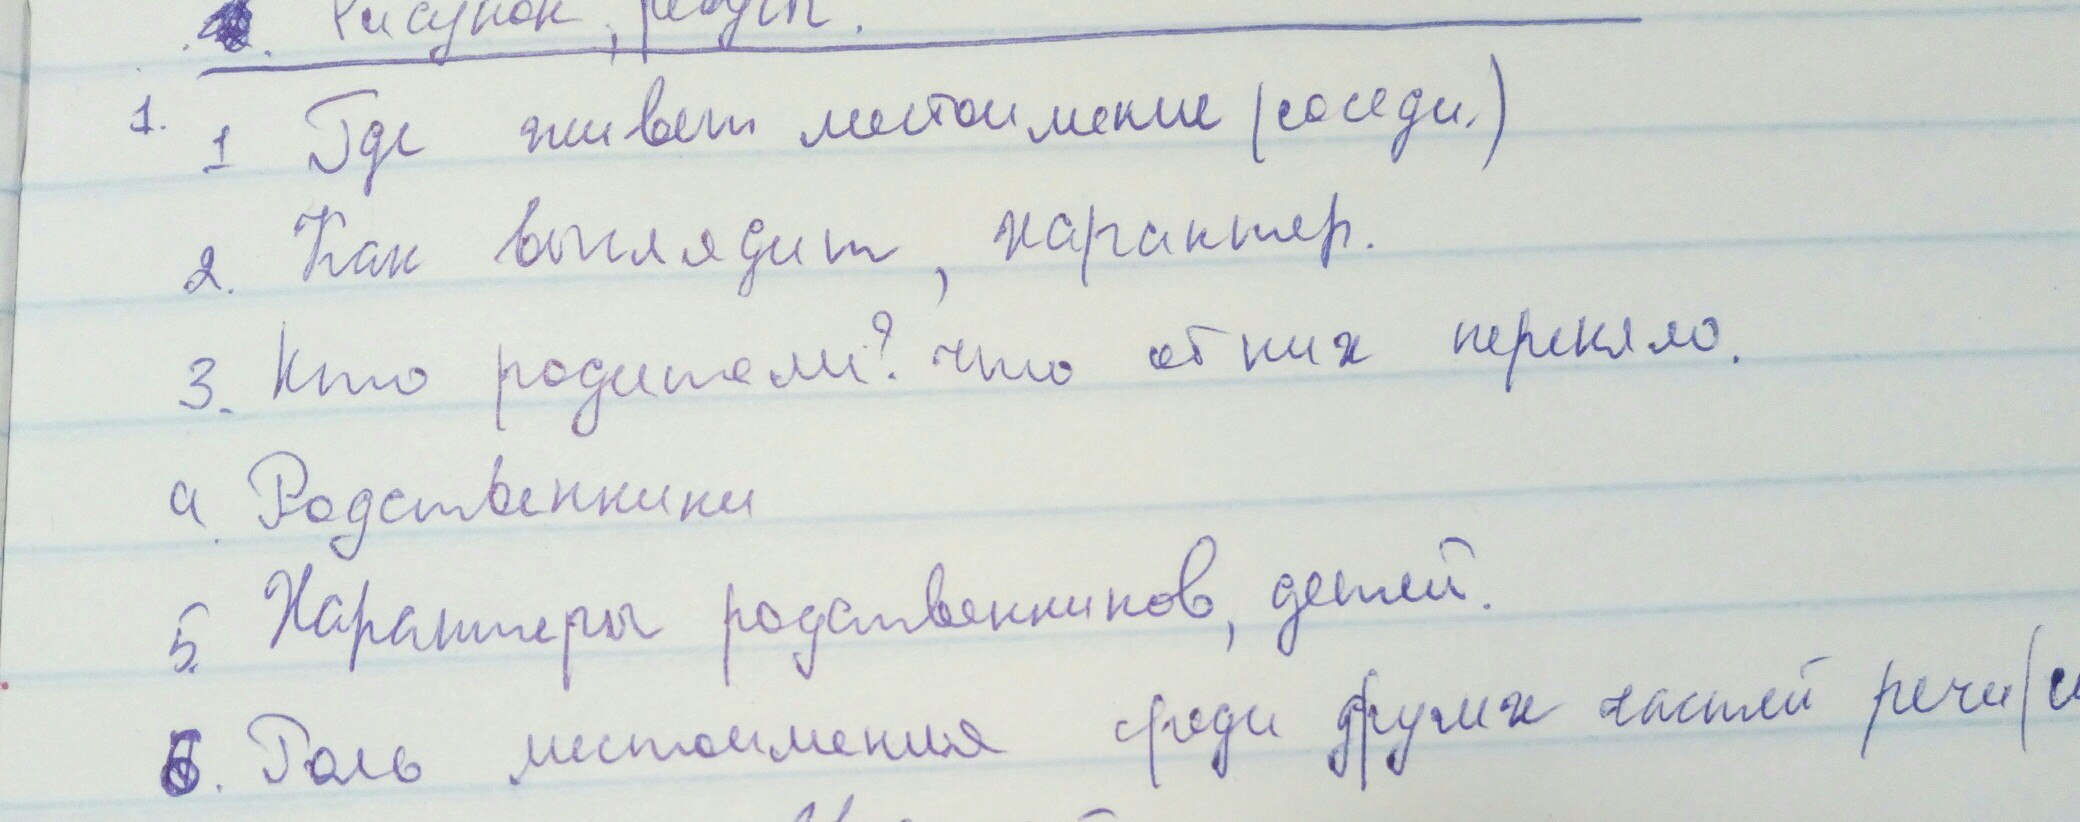 Рисунок, ребусы.
1. 1 Где живет местоимение (соседи.)
2. Как выглядит, характер.
3. Кто родители? что от них переняло.
4. Родственники
5. Характеры родственников, детей.
6. Роль местоимения среди других частей речи (